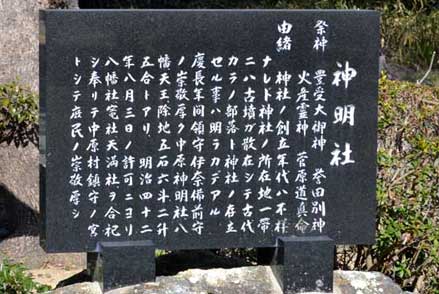 神明社
祭神 豊受大御神 誉田別神
火産霊神 菅原道真命
由緒
神社ノ創立年代ハ不詳
ナレド神社ノ所在地一帯
ニハ古墳ガ散在シテ古代
カラノ部落ト神社ノ存在
セル事ハ明ラカデアル
慶長年間領守伊奈備前守
ノ崇敬厚ク中原神明社八
幡天王除地五石六斗二升
五合トアリ、明治四十二
年八月三日ノ許可ニヨリ
八幡社竃社天満社ヲ合祀
シ奉リテ中原村鎮守ノ宮
トシテ庶民ノ崇敬厚シ